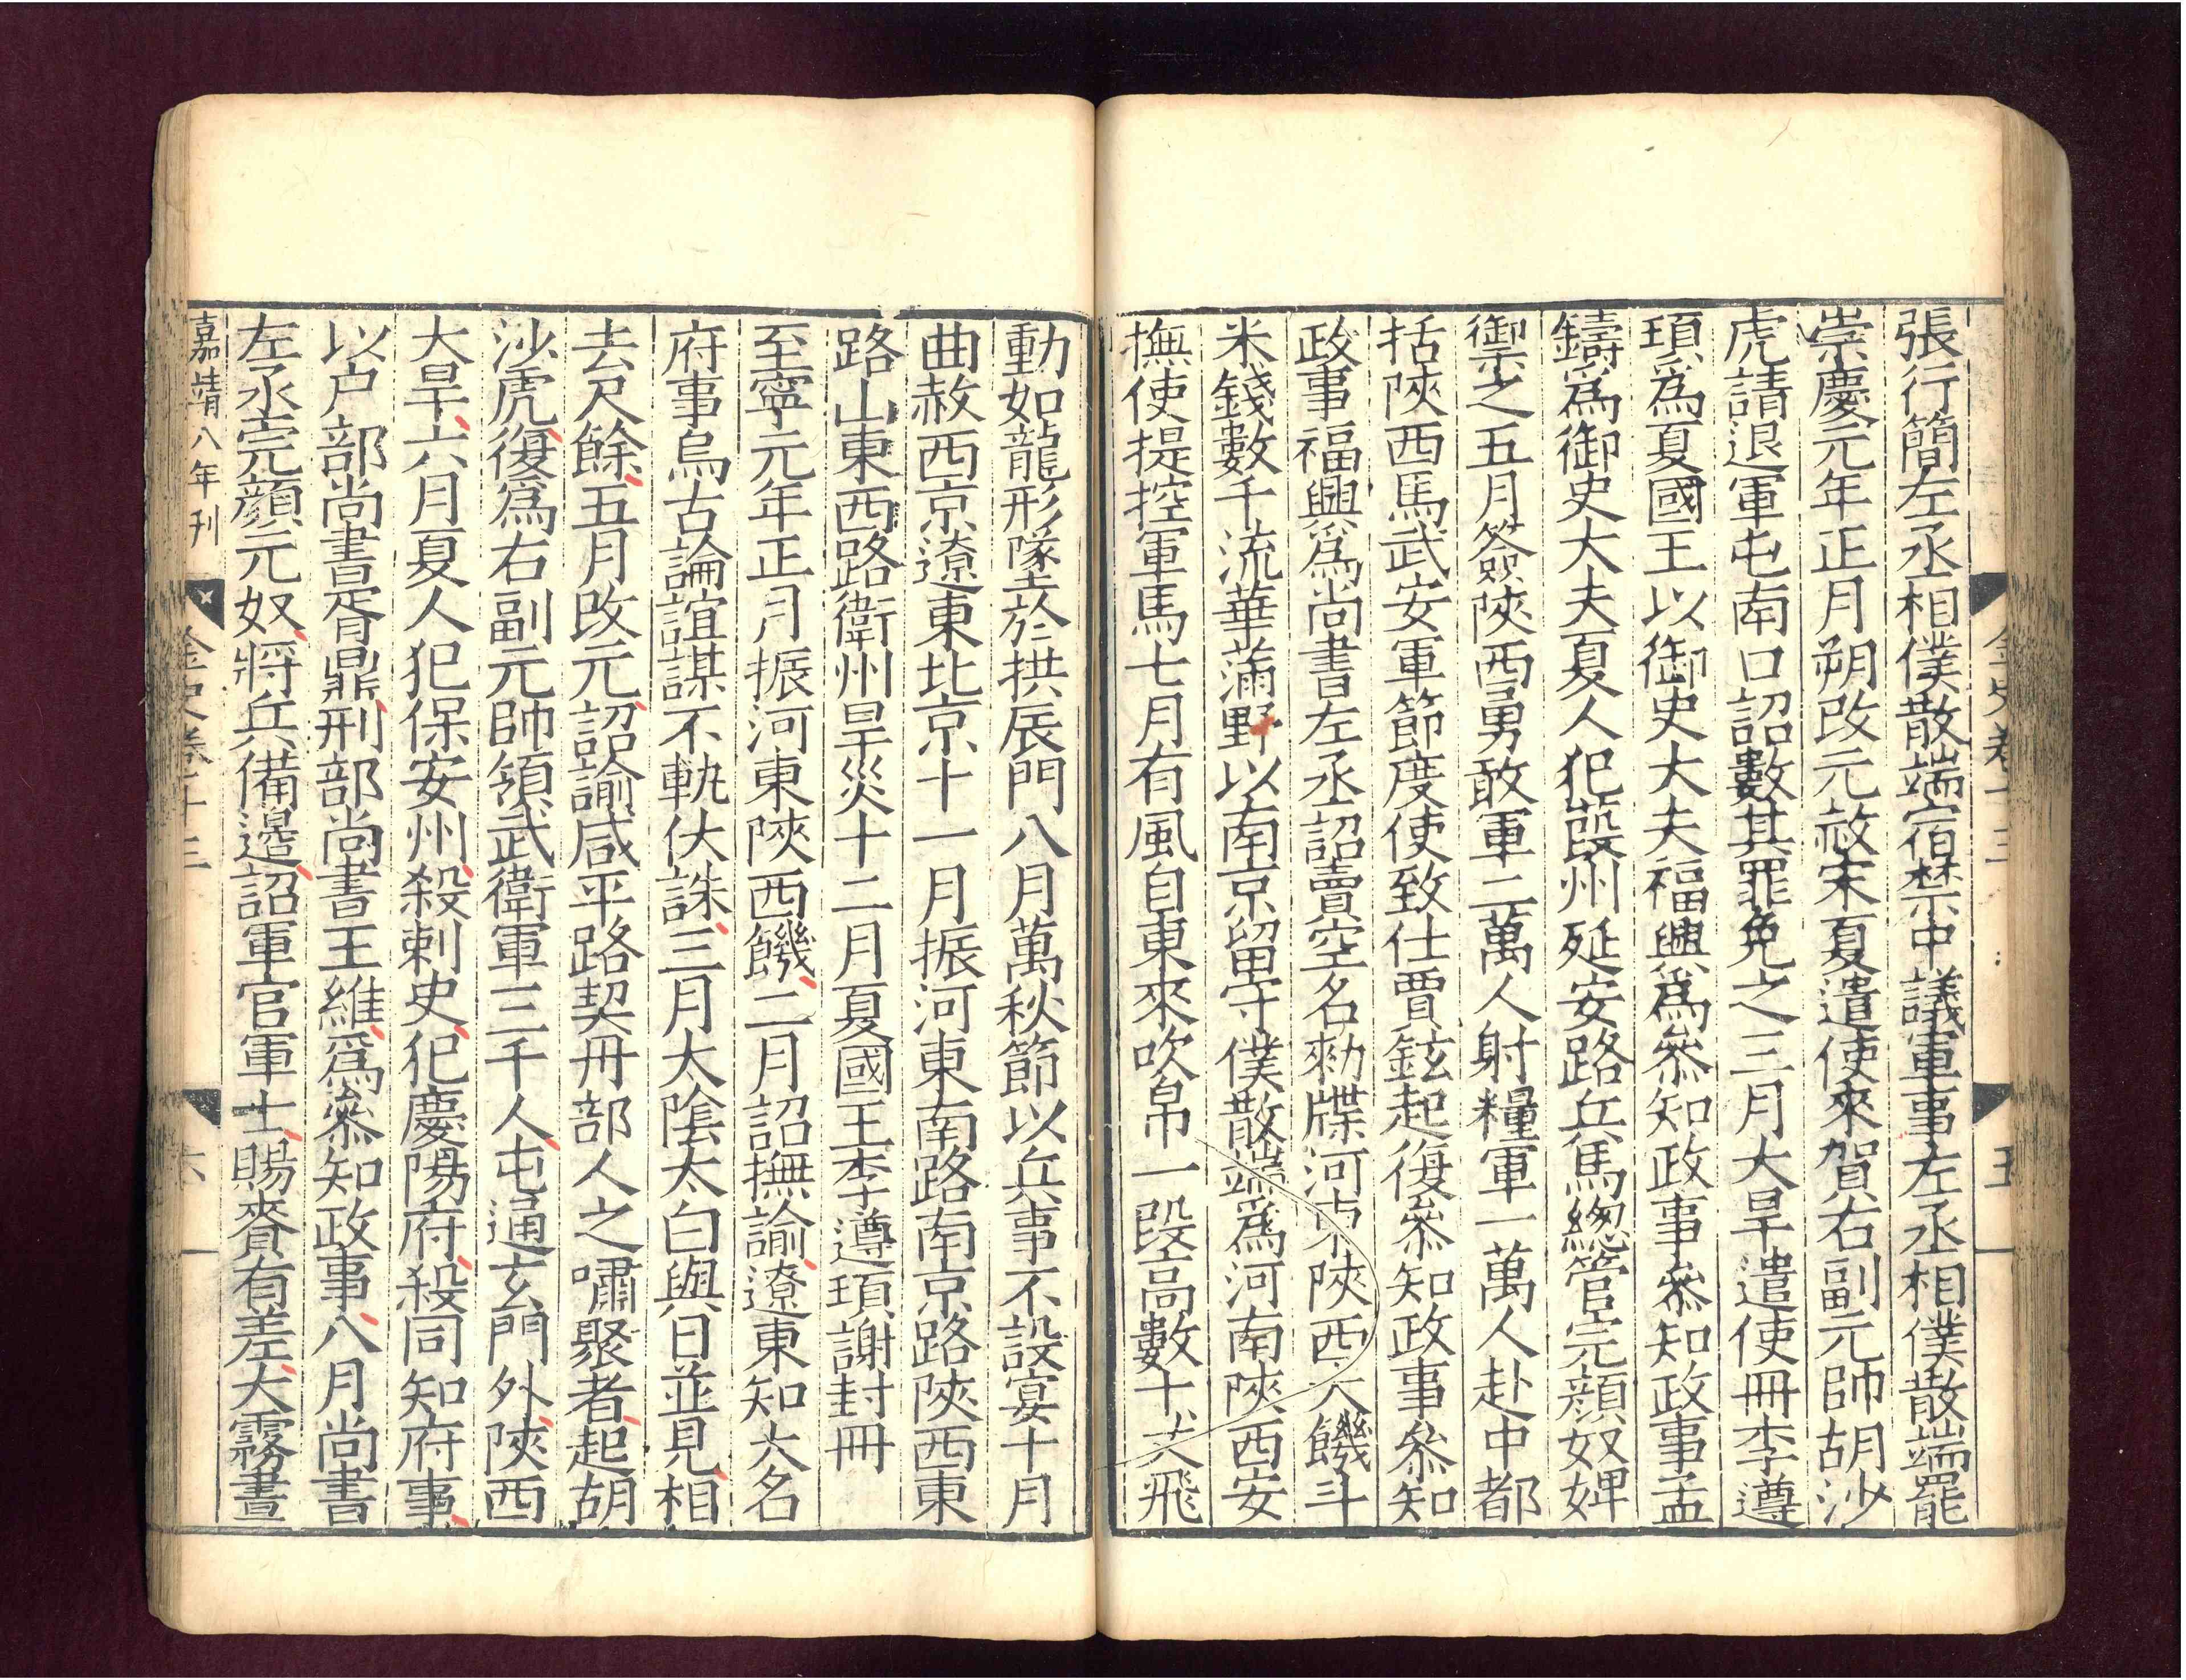 張行簡左丞相僕散端宿禁中議軍事左丞相僕散端罷
崇慶元年正月朔改元赦宋夏遣使來賀右副元帥胡沙
虎請退軍屯南口詔數其罪免之三月大旱遣使冊李遵
頊爲夏國王以御史大夫福興爲叅知政事叅知政事孟
鑄爲御史大夫夏人犯葭州延安路兵馬緫管完顏奴婢
禦之五月簽陝西勇敢軍二萬人射糧軍一萬人赴中都
括陝西馬武安軍節度使致仕賈鉉起復叅知政事叅知
政事福興爲尚書左丞詔賣空名勑牒河東陝西大饑斗
米錢數千流莩滿野以南京留守僕散端爲河南陝西安
撫使提控軍馬七月有風自東來吹帛一段高數十丈飛
金史卷十三
五
動如龍形墜於拱辰門八月萬秋節以兵事不設宴十月
曲赦西京遼東北京十一月振河東南路南京路陝西東
路山東西路衛州旱災十二月夏國王李遵頊謝封冊
至寧元年正月振河東陝西饑二月詔撫諭遼東知大名
府事烏古論誼謀不軌伏誅三月太陰太白與日並見相
去尺餘五月改元詔諭咸平路契丹部人之嘯聚者起胡
沙虎復爲右副元帥領武衛軍三千人屯通玄門外陝西
大旱六月夏人犯保安州殺刺史犯慶陽府殺同知府事
以户部尚書胥鼎刑部尚書王維爲叅知政事八月尚書
左丞完顏元奴將兵備邊詔軍官軍士賜賚有差大霧晝
嘉靖八年刊
金史卷十三
六